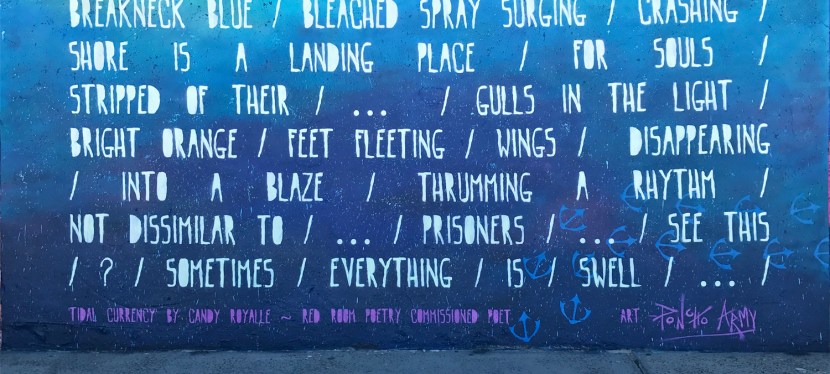 BREAKNECK BLUE / BLEACHED SPRAY SURGING / CRASHING /
SHORE IS A LANDING PLACE / FOR SOULS /
STRIPPED OF THEIR / ... / GULLS IN THE LIGHT /
BRIGHT ORANGE / FEET FLEETING / WINGS / DISAPPEARING
/ INTO A BLAZE / THRUMMING A RHYTHM /
NOT DISSIMILAR TO / ... / PRISONERS / ... / SEE THIS
/ ? / SOMETIMES / EVERYTHING / IS / SWELL / ... /
TIDAL CURRENCY BY CANDY ROYALLE ~ RED ROOM POETRY COMMISSIONED POET ART PONCHO ARMY